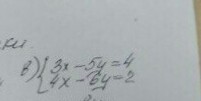 в) { 3x - 5y = 4
4x - 6y = 2